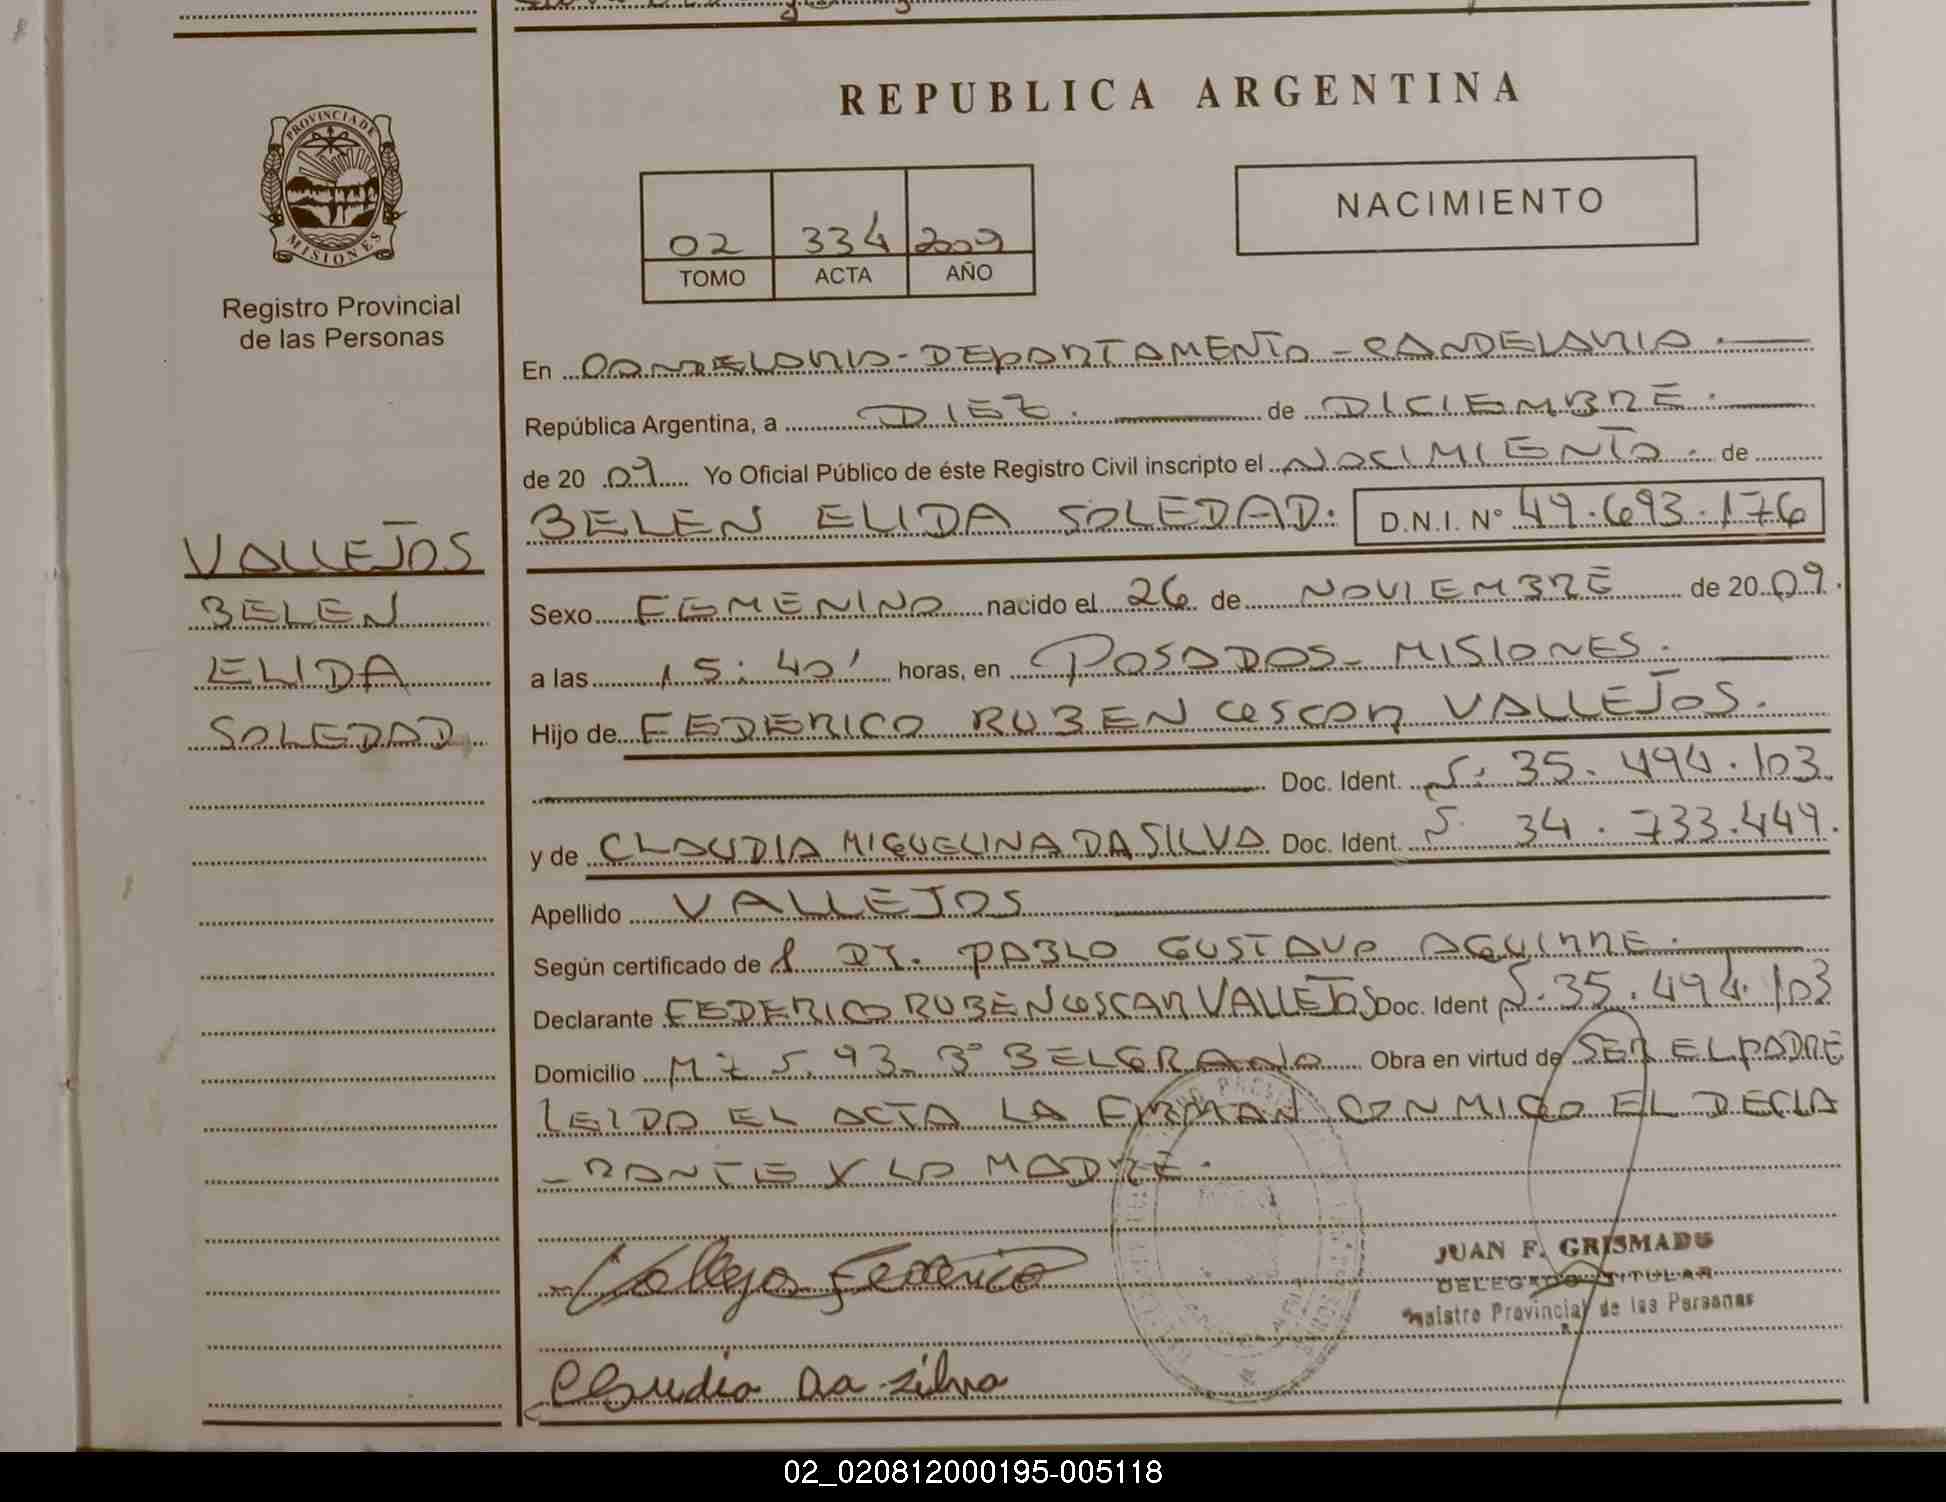 REPUBLICA ARGENTINA
PROVINCIA DE
MISIONES
Registro Provincial
de las Personas
02 334 2009
TOMO ACTA AÑO
NACIMIENTO
En CANDELARIA - DEPARTAMENTO - CANDELARIA.
República Argentina, a DIEZ. de DICIEMBRE.
de 20 09 Yo Oficial Público de éste Registro Civil inscripto el NACIMIENTO. de
BELEN ELIDA SOLEDAD. D.N.I. N° 49.693.176
VALLEJOS
BELEN
ELIDA
SOLEDAD
Sexo FEMENINO nacido el 26 de NOVIEMBRE de 20 09.
a las 15:40' horas, en POSADAS - MISIONES.
Hijo de FEDERICO RUBEN OSCAR VALLEJOS.
Doc. Ident. 35.494.103
y de CLAUDIA MIQUELINA DA SILVA Doc. Ident. 34.733.449.
Apellido VALLEJOS
Según certificado de PABLO GUSTAVO AGUIRRE.
Declarante FEDERICO RUBEN OSCAR VALLEJOS Doc. Ident 35.494.103
Domicilio MZ 5. 93. B° BELGRANO Obra en virtud de SER EL PADRE
LEIDA EL ACTA LA FIRMAN CONMIGO EL DECLA
- RANTE Y LA MADRE.
Vallejos Federico
JUAN F. GRISMADO
DELEGADO TITULAR
Registro Provincial de las Personas
Claudia Da Silva
02_020812000195-005118